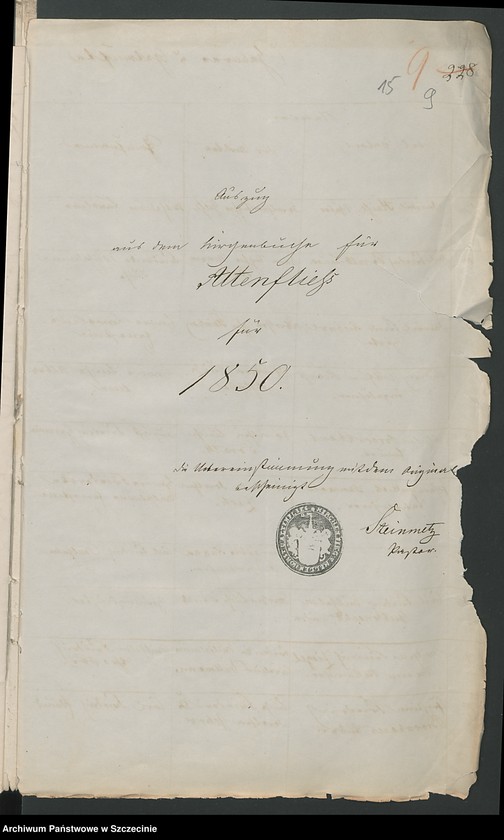 15 9 228
9
Auszug
aus dem Kirchenbuche für
Altenfliess
für
1850.
Die Uebereinstimmung mit dem Original
bescheinigt
Steinmetz
Pastor.
Archiwum Państwowe w Szczecinie